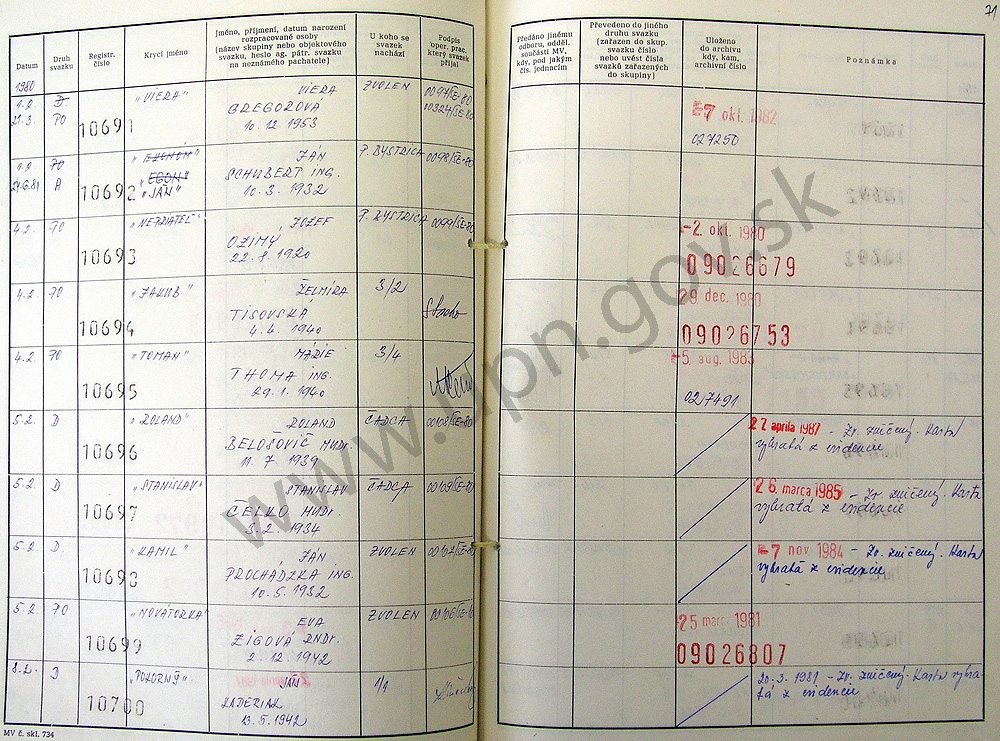 71
Datum
Druh svazku
Registr. číslo
Krycí jméno
Jméno, příjmení, datum narození
rozpracované osoby
(název skupiny nebo objektového
svazku, heslo ag. pátr. svazku
na neznámého pachatele)
U koho se
svazek
nachází
Podpis
oper. prac.
který svazek
přijal
Předáno jinému
odboru, odděl.
součásti MV,
kdy, pod jakým
čís. jednacím
Převedeno do jiného
druhu svazku
(zařazen do skup.
svazku číslo
nebo uvést čísla
svazků zařazených
do skupiny)
Uloženo
do archivu
kdy, kam,
archivní číslo
Poznámka
1980
1.2. D. "VIERA" VIERA ZVOLEN
21.3. PO 10691 GREGOROVA -7 okt. 1982
10. 12. 1953 027250
1.2. PO "EKONÓM" JÁN P. BYSTRICA 0098/SE-80
"EGON" SCHUBERT ING.
A 10692 "JÁN" 10. 3. 1932
4.2. PO "NEPRIATEL" JOZEF P. BYSTRICA 0099/SE-80 -2. okt. 1980
10693 OZIMÝ 09026679
22. 8. 1920
4.2. PO "JAKUB" ŽELMÍRA 3/2 29 dec. 1980
10694 TISOVSKÁ 09026753
4. 4. 1940
4.2. PO "TOMAN" MÁRIE 3/4 -5. aug. 1983
10695 THOMA ING.
29. 1. 1940 027491
5.2. D "ROLAND" ROLAND ČADCA 22 apríla 1987 - Zv. zničený. Karta
10696 BELOŠOVIČ MUDr. vybratá z evidencie
11. 7. 1939
5.2. D "STANISLAV" STANISLAV ČADCA 26. marca 1985 - Zv. zničený. Karta
10697 ČELKO MUDr. vybratá z evidencie
3. 2. 1934
5.2. D. "KAMIL" JÁN ZVOLEN -7 nov. 1984 - Zv. zničený. Karta
10698 PROCHÁDZKA ING. vybratá z evidencie
10. 5. 1932
5.2. PO "NOVÁTORKA" EVA ZVOLEN 00106/SE-80 25 marc. 1981
10699 ŽIGOVÁ RNDr. 09026807
2. 12. 1942
8.2. D "POKORNÝ" JÁN 20. 3. 1981 - Zv. zničený. Karta vybra-
10700 LADERIAK tá z evidencie
13. 5. 1942
MV č. skl. 734
www.upn.gov.sk